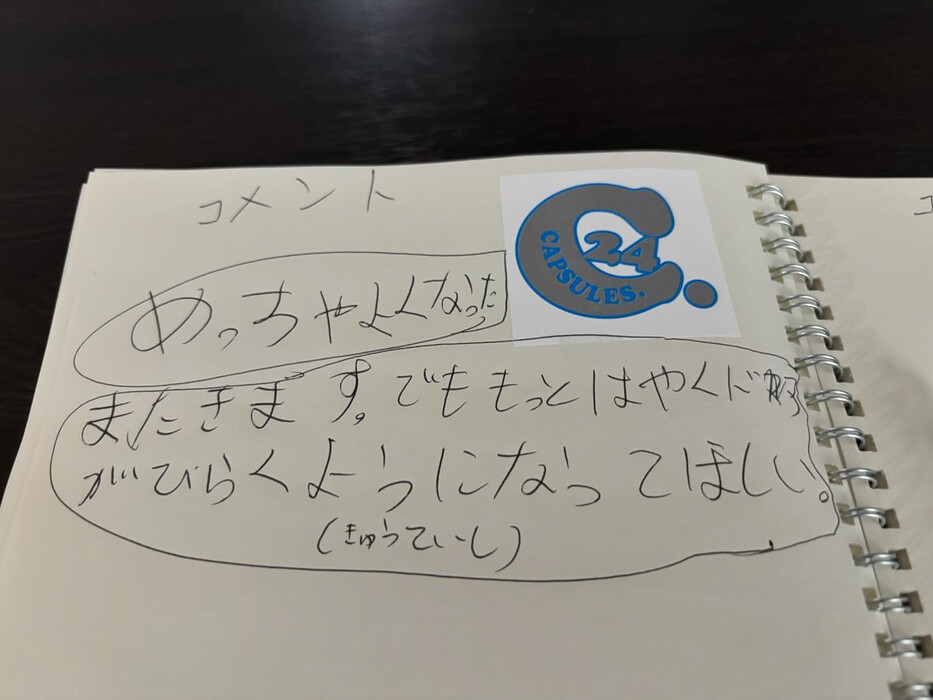 コメント
C.
24
CAPSULES.
めっちゃよくなった
また きます。でももっとはやくド
がひらくようになってほしい。
(きゅうていし)
コ